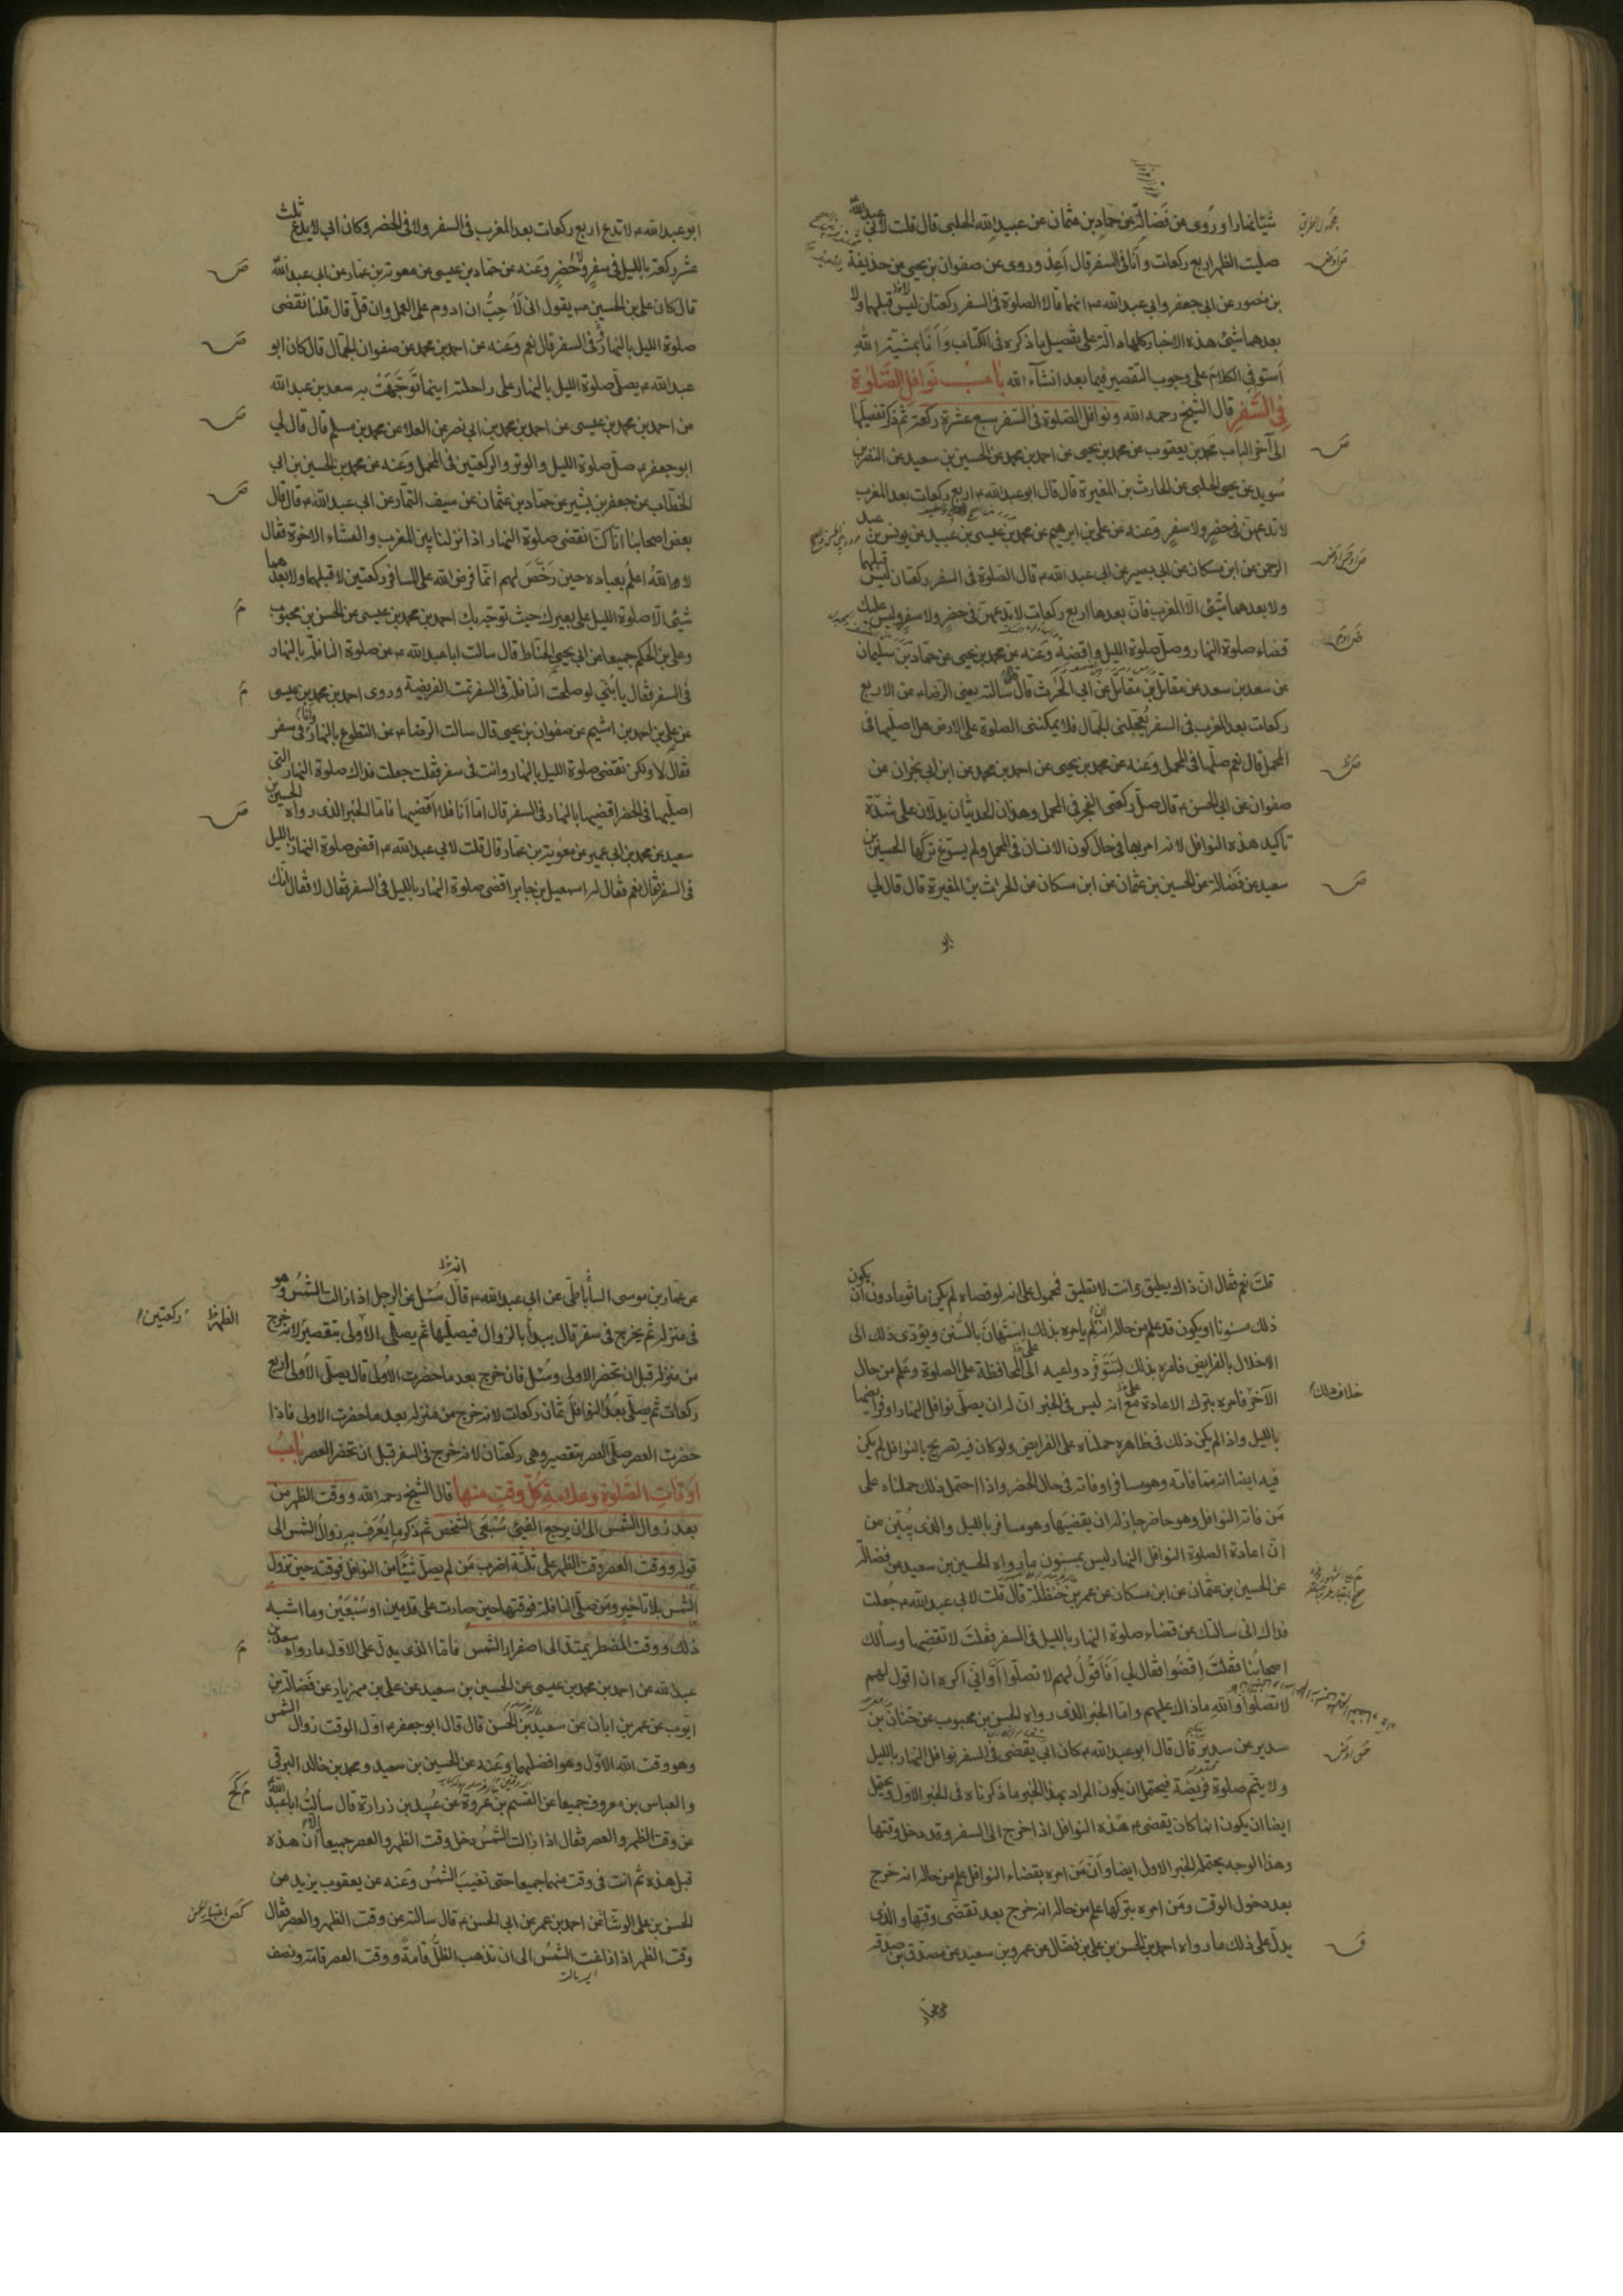 شيئا نهارا وروى عن فضالة عن حماد بن عثمان عن عبيد الله الحلبى قال قلت لابى عبد الله
صليت الظهر اربع ركعات وانا فى السفر قال اعد وروى عن صفوان بن يحيى عن حذيفة
بن منصور عن ابى جعفر وابى عبد الله ع انهما قالا الصلوة فى السفر ركعتان ليس قبلهما ولا
بعدهما شيئ هذه الاخبار كلها دالة على تفصيل ما ذكره فى الكتاب وانا بمشية الله
استوفى الكلام على وجوب التقصير فيما بعد انشآء الله باب نوافل الصلوة
فى السفر قال الشيخ رحمه الله ونوافل الصلوة فى السفر سبع عشرة ركعة ثم ذكر تفصيلها
الى آخر الباب محمد بن يعقوب عن محمد بن يحيى عن احمد بن محمد عن الحسين بن سعيد عن النضر بن
سويد عن يحيى الحلبى عن الحارث بن المغيرة قال قال ابو عبد الله ع اربع ركعات بعد المغرب
لا تدعهن فى حضر ولا سفر وعنه عن على بن ابرهيم عن محمد بن عيسى بن عبيد عن يونس بن عبد
الرحمن عن ابن مسكان عن ابى بصير عن ابى عبد الله ع قال الصلوة فى السفر ركعتان ليس قبلهما
ولا بعدهما شيئ الا المغرب فان بعدها اربع ركعات لا تدعهن فى حضر ولا سفر وليس عليك
قضاء صلوة النهار وصل صلوة الليل واقضه وعنه عن محمد بن يحيى عن حماد بن سليمان
عن سعد بن سعد عن مقاتل بن مقاتل عن ابى الحرث قال سالته يعنى الرضا ع عن الاربع
ركعات بعد المغرب فى السفر يعجلنى الجمال فلا يمكننى الصلوة على الارض هل اصليها فى
المحمل قال نعم صلها فى المحمل وعنه عن محمد بن يحيى عن احمد بن محمد عن ابن ابى نجران عن
صفوان عن ابى الحسن ع قال صل ركعتى الفجر فى المحمل وهذان الحديثان يدلان على شدة
تاكيد هذه النوافل لانه امر بها فى حال كون الانسان فى المحمل ولم يسوغ تركها الحسين بن
سعيد عن فضالة عن الحسين بن عثمان عن ابن مسكان عن الحرث بن المغيرة قال قال لى
ابو
ابو عبد الله ع لا تدع اربع ركعات بعد المغرب فى السفر ولا فى الحضر وكان ابى لا يدع ثلث
عشر ركعة بالليل فى سفر ولا حضر وعنه عن حماد بن عيسى عن معوية بن عمار عن ابى عبد الله
قال كان على بن الحسين ع يقول انى لاحب ان ادوم على العمل وان قل قال قلنا نقضى
صلوة الليل بالنهار فى السفر قال نعم وعنه عن احمد بن محمد عن صفوان الجمال قال كان ابو
عبد الله ع يصلى صلوة الليل بالنهار على راحلته اينما توجهت به سعد بن عبد الله
عن احمد بن محمد بن عيسى عن احمد بن محمد بن ابى نصر عن العلا عن محمد بن مسلم قال قال لى
ابو جعفر ع صل صلوة الليل والوتر والركعتين فى المحمل وعنه عن محمد بن الحسين بن ابى
الخطاب عن جعفر بن بشير عن حماد بن عثمان عن سيف التمار عن ابى عبد الله ع قال قال
بعض اصحابنا انا كنا نقضى صلوة النهار اذا نزلنا بين المغرب والعشاء الاخرة فقال
لا الله اعلم بعباده حين رخص لهم انما فرض الله على المسافر ركعتين لا قبلهما ولا بعدهما
شيئ الا صلوة الليل على بعيرك حيث توجه بك احمد بن محمد بن عيسى عن الحسن بن محبوب
وعلى بن الحكم جميعا عن ابى يحيى الحناط قال سالت ابا عبد الله ع عن صلوة النافلة بالنهار
فى السفر فقال يا بنى لو صلحت النافلة فى السفر تمت الفريضة وروى احمد بن محمد بن عيسى
عن على بن احمد بن اشيم عن صفوان بن يحيى قال سالت الرضا ع عن التطوع بالنهار وانا فى سفر
فقال لا ولكن تقضى صلوة الليل بالنهار وانت فى سفر فقلت جعلت فداك صلوة النهار التى
اصليها فى الحضر اقضيها بالنهار فى السفر قال اما انا فلا اقضيها فاما الخبر الذى رواه الحسين بن
سعيد عن محمد بن ابى عمير عن معوية بن عمار قال قلت لابى عبد الله ع اقضى صلوة النهار بالليل
فى السفر قال نعم فقال له اسمعيل بن جابر اقضى صلوة النهار بالليل فى السفر فقال لا فقال انك
قلت نعم فقال ان ذاك يطيق وانت لا تطيق فمحمول على انه لو قضاه لم يكن ماثوما دون ان يكون
ذلك مسنونا او يكون قد علم من حاله انه ان لم يامره بذلك استهان بالسنن ويؤدى ذلك الى
الاخلال بالفرايض فامره بذلك لتتوفر دواعيه الى المحافظة على الصلوة وعلم من حال
الآخر خلاف ذلك فامره بترك الاعادة مع انه ليس فى الخبر ان له ان يصلى نوافل النهار او فرايضها
بالليل واذا لم يكن ذلك فى ظاهره حملناه على الفرايض ولو كان فيه تصريح بالنوافل لم يكن
فيه ايضا انه متى فاتته وهو مسافر او فاتته فى حال الحضر واذا احتمل ذلك حملناه على
من فاتته النوافل وهو حاضر جاز له ان يقضيها وهو مسافر بالليل والذى يبين عن
ان اعادة الصلوة النوافل النهار ليس بمسنون ما رواه الحسين بن سعيد عن فضالة
عن الحسين بن عثمان عن ابن مسكان عن عمر بن حنظلة قال قلت لابى عبد الله ع جعلت
فداك انى سالتك عن قضاء صلوة النهار بالليل فى السفر فقلت لا تقضها وسألك
اصحابنا فقلت اقضوا فقال لى افاقول لهم لا تصلوا وانى اكره ان اقول لهم
لا تصلوا والله ما ذاك عليهم واما الخبر الذى رواه الحسن بن محبوب عن حنان بن
سدير عن سدير قال قال ابو عبد الله ع كان ابى يقضى فى السفر نوافل النهار بالليل
ولا يتم صلوة فريضة فيحتمل ان يكون المراد بهذا الخبر ما ذكرناه فى الخبر الاول ويحتمل
ايضا ان يكون انما كان يقضى ع هذه النوافل اذا خرج الى السفر وقد دخل وقتها
وهذا الوجه يحتمله الخبر الاول ايضا وان من امره بقضاء النوافل علم من حاله انه خرج
بعد دخول الوقت ومن امره بتركها علم من حاله انه خرج بعد تقضى وقتها والذى
يدل على ذلك ما رواه احمد بن الحسن بن على بن فضال عن عمرو بن سعيد عن مصدق بن صدقة
عن عمار
عن عمار بن موسى الساباطى عن ابى عبد الله ع قال سئل عن الرجل اذا زالت الشمس وهو
فى منزله ثم يخرج فى سفر قال يبدأ بالزوال فيصليها ثم يصلى الاولى بتقصير ركعتين لانه خرج
من منزله قبل ان تحضر الاولى وسئل فان خرج بعد ما حضرت الاولى قال يصلى الاولى اربع
ركعات ثم يصلى بعد النوافل ثمان ركعات لانه خرج من منزله بعد ما حضرت الاولى فاذا
حضرت العصر صلى العصر بتقصير وهى ركعتان لانه خرج فى السفر قبل ان تحضر العصر باب
اوقات الصلوة وعلامة كل وقت منها قال الشيخ رحمه الله ووقت الظهر من
بعد زوال الشمس الى ان يرجع الفيئ سبعى الشخص ثم ذكر ما يعرف به زوال الشمس الى
قوله ووقت العصر وقت الظهر على ثلثة اضرب من لم يصل شيئا من النوافل فوقته حين تزول
الشمس بلا تاخير ومن صلى النافلة فوقتها حين صارت على قدمين او سبعين وما اشبه
ذلك ووقت المضطر يمتد الى اصفرار الشمس فاما الذى يدل على الاول ما رواه سعد بن
عبد الله عن احمد بن محمد بن عيسى عن الحسين بن سعيد عن على بن مهزيار عن فضالة بن
ايوب عن عمر بن ابان عن سعيد بن الحسن قال قال ابو جعفر ع اول الوقت زوال الشمس
وهو وقت الله الاول وهو افضلهما وعنه عن الحسين بن سعيد ومحمد بن خالد البرقى
والعباس بن معروف جميعا عن القسم بن عروة عن عبيد بن زرارة قال سألت ابا عبد الله
عن وقت الظهر والعصر فقال اذا زالت الشمس دخل وقت الظهر والعصر جميعا الا ان هذه
قبل هذه ثم انت فى وقت منهما جميعا حتى تغيب الشمس وعنه عن يعقوب يزيد عن
الحسن بن على الوشا عن احمد بن عمر عن ابى الحسن ع قال سالته عن وقت الظهر والعصر فقال
وقت الظهر اذا زاغت الشمس الى ان تذهب الظل قامة ووقت العصر قامة ونصف